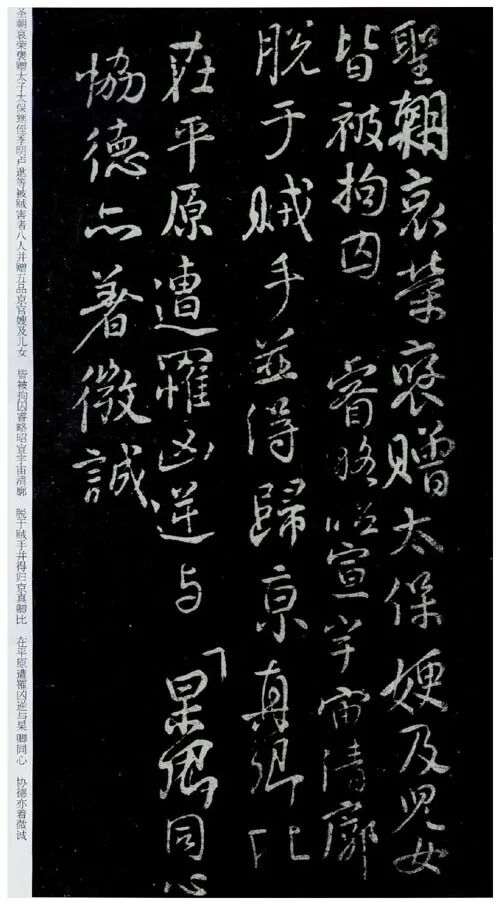 聖朝哀榮褒贈太保嫂及児女
皆被拘囚 睿略昭宣宇宙清廓
脱于賊手並得歸京真卿比
在平原遭罹凶逆与 杲卿同心
協德亦著微誠
圣朝哀荣褒赠太子太保甥侄季明卢逖等被贼害者八人并赠五品京官嫂及儿女 皆被拘囚睿略昭宣宇宙清廓 脱于贼手并得归京真卿比 在平原遭罹凶逆与杲卿同心 协德亦着微诚